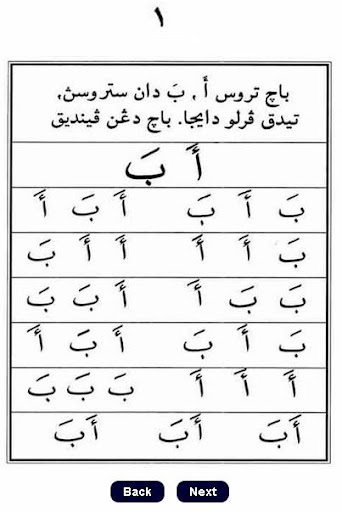 ١
باچ تروس أَ , بَ دان ستروسڽ,
تيدق ڤرلو دايجا. باچ دڠن ڤينديق
أَ بَ
بَ أَ بَ أَ بَ أَ
بَ أَ أَ أَ أَ بَ
بَ بَ أَ أَ بَ بَ
بَ أَ بَ أَ بَ أَ
أَ أَ أَ بَ بَ بَ
أَبَ أَبَ أَبَ
Back Next